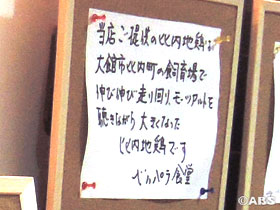 当店ご提供の比内地鶏は
大館市比内町の飼育場で
伸び伸び走り回り、モーツアルトを
聴きながら大きくなった
比内地鶏です
食堂
©ABS